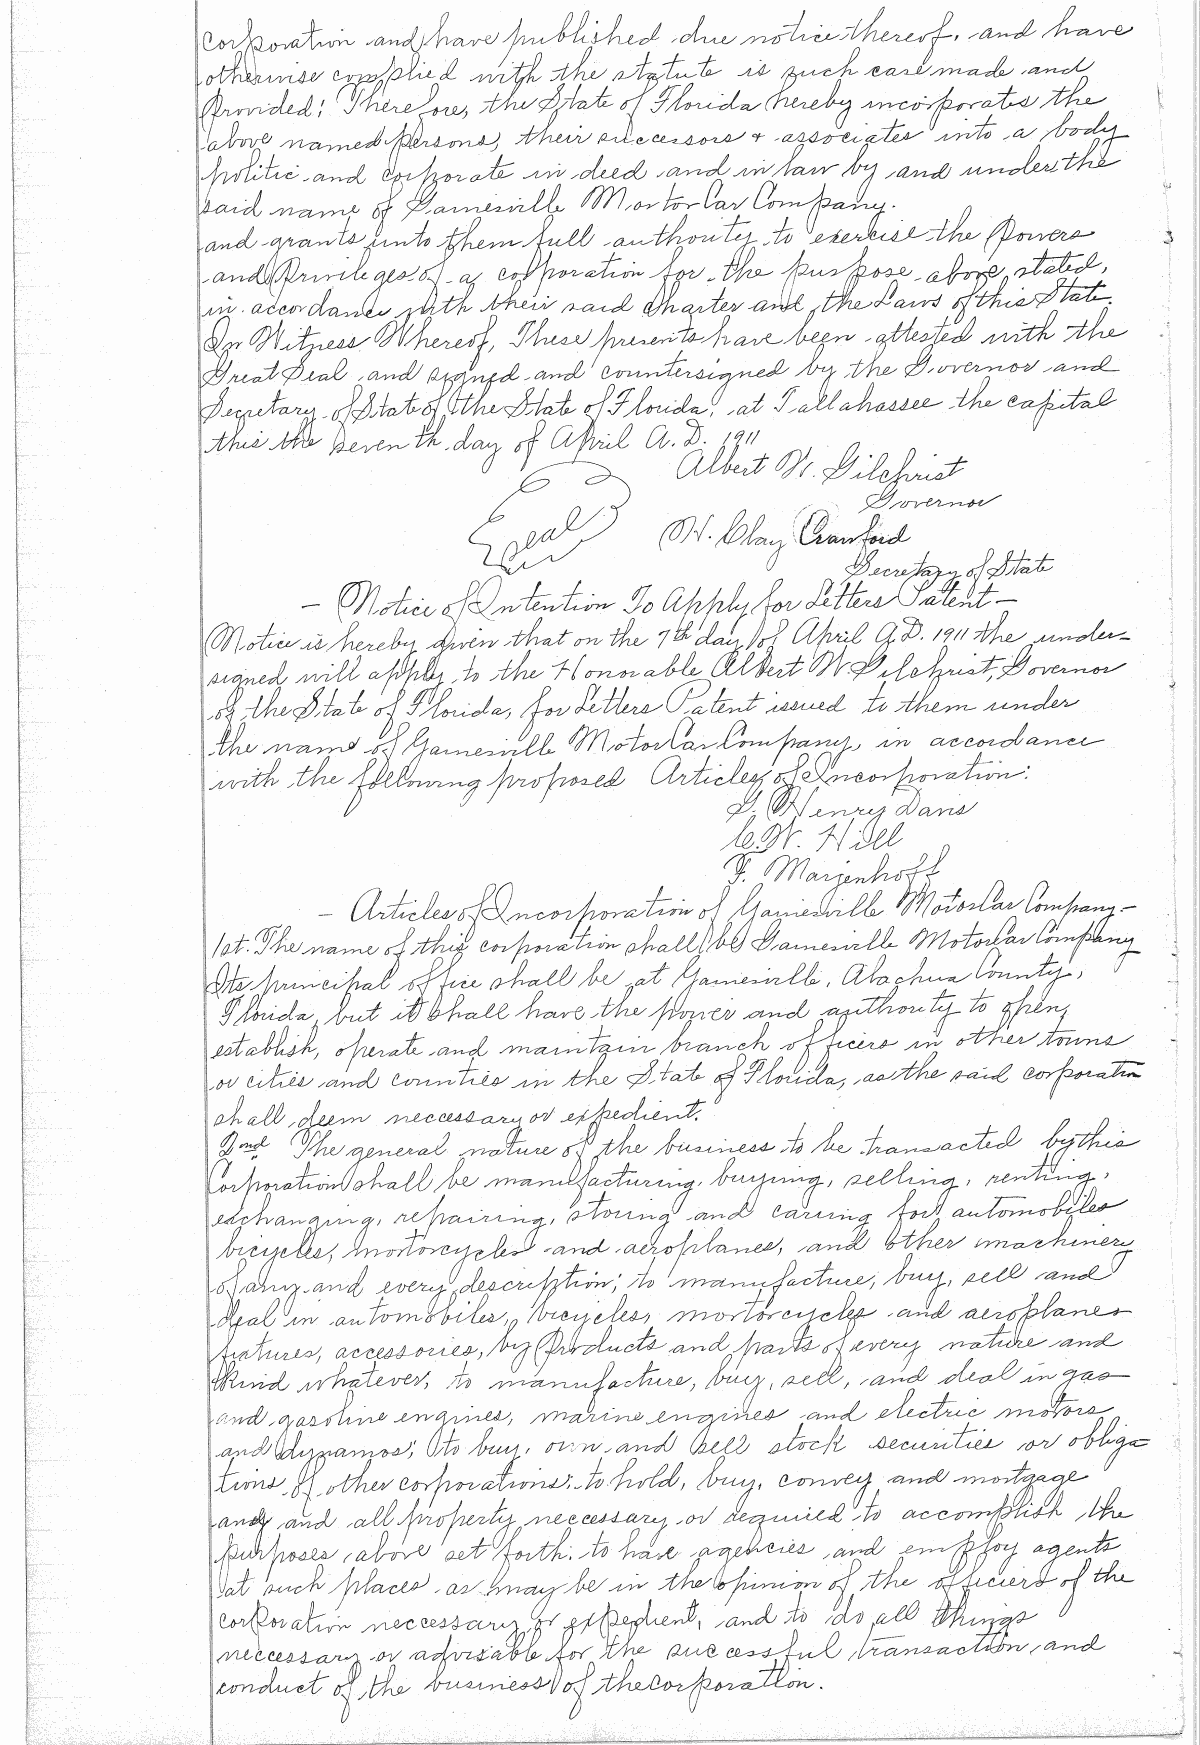 corporation and have published due notice thereof, and have
otherwise complied with the statute is such case made and
Provided; Therefore, the State of Florida hereby incorporates the
above named persons, their successors & associates into a body
politic and corporate in deed and in law by and under the
said name of Gainesville Mortor Car Company.
and grants unto them full authority to exercise the Powers
and Privileges of a corporation for the purpose above stated,
in accordance with their said Charter and the Laws of this State.
In Witness Whereof, These presents have been attested with the
Great Seal and signed and countersigned by the Governor and
Secretary of State of the State of Florida, at Tallahassee the capital
this the seventh day of April A.D. 1911
Albert W. Gilchrist
Governor
Seal
H. Clay Crawford
Secretary of State
– Notice of Intention To Apply for Letters Patent –
Notice is hereby given that on the 7th day of April A.D. 1911 the under-
signed will apply to the Honorable Albert W. Gilchrist, Governor
of the State of Florida, for Letters Patent issued to them under
the name of Gainesville Motor Car Company, in accordance
with the following proposed Articles of Incorporation:
Henry Davis
C.W. Hill
F. Marjenhoff
– Articles of Incorporation of Gainesville Motor Car Company –
1st. The name of this corporation shall be Gainesville Motor Car Company
Its principal office shall be at Gainesville, Alachua County,
Florida, but it shall have the power and authority to open,
establish, operate and maintain branch officers in other towns
or cities and counties in the State of Florida, as the said corporation
shall deem neccessary or expedient.
2nd The general nature of the business to be transacted by this
Corporation shall be manufacturing, buying, selling, renting,
exchanging, repairing, storing and caring for automobiles
bicycles, mortorcycles and aeroplanes, and other machinery
of any and every description; to manufacture, buy, sell and
deal in automobiles, bicycles, mortorcycles and aeroplanes
fixtures, accessories, by Products and parts of every nature and
Kind whatever, to manufacture, buy, sell, and deal in gas
and gasoline engines, marine engines and electric motors
and dynamos; to buy, own and sell stock securities or obliga
tions of other corporations; to hold, buy, convey and mortgage
any and all property neccessary or required to accomplish the
purposes above set forth; to have agencies and employ agents
at such places as may be in the opinion of the officiers of the
corporation neccessary or expedient, and to do all things
neccessary or advisable for the successful transaction and
conduct of the business of the corporation.